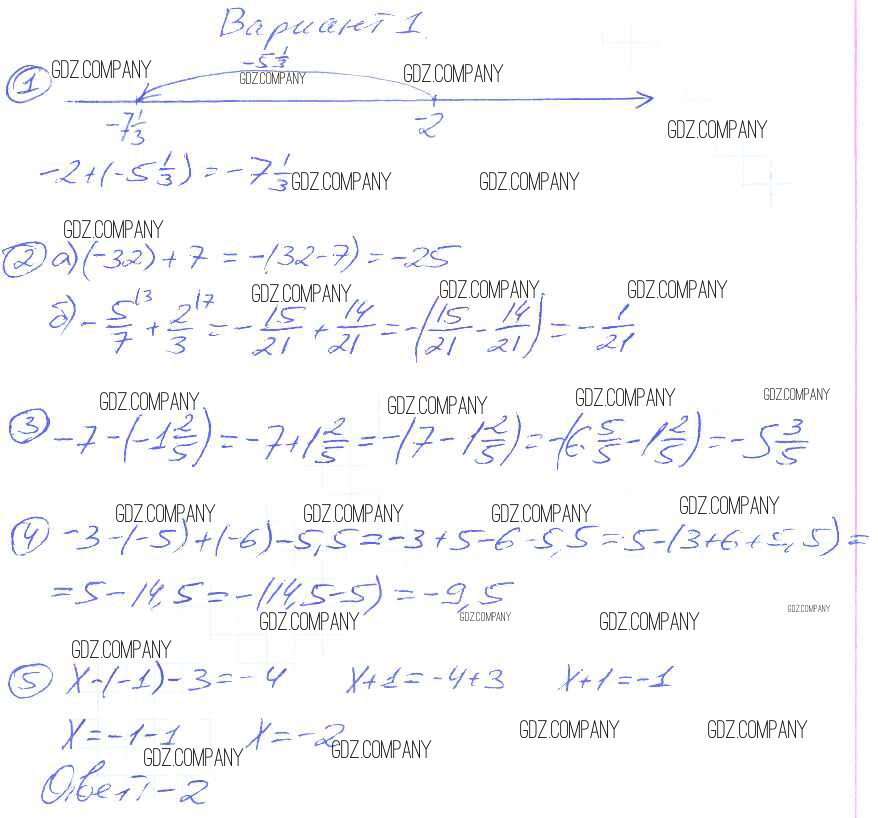 Вариант 1.
-5 1/3
GDZ.COMPANY GDZ.COMPANY GDZ.COMPANY
1
-7 1/3 -2 GDZ.COMPANY
-2+(-5 1/3) = -7 1/3 GDZ.COMPANY GDZ.COMPANY
GDZ.COMPANY
2 а) (-32) + 7 = -(32-7) = -25
GDZ.COMPANY GDZ.COMPANY GDZ.COMPANY
б) - 5/7 |3 + 2/3 |7 = - 15/21 + 14/21 = -(15/21 - 14/21) = - 1/21
GDZ.COMPANY GDZ.COMPANY GDZ.COMPANY GDZ.COMPANY
3 -7-(-1 2/5) = -7+1 2/5 = -(7 - 1 2/5) = -(6 5/5 - 1 2/5) = -5 3/5
GDZ.COMPANY GDZ.COMPANY GDZ.COMPANY GDZ.COMPANY
4 -3-(-5)+(-6)-5,5 = -3+5-6-5,5 = 5-(3+6+5,5) =
= 5-14,5 = -(14,5-5) = -9,5
GDZ.COMPANY GDZ.COMPANY GDZ.COMPANY GDZ.COMPANY
GDZ.COMPANY
5 X-(-1)-3=-4 X+1=-4+3 X+1=-1
X=-1-1 X=-2 GDZ.COMPANY GDZ.COMPANY
GDZ.COMPANY GDZ.COMPANY
Ответ: -2